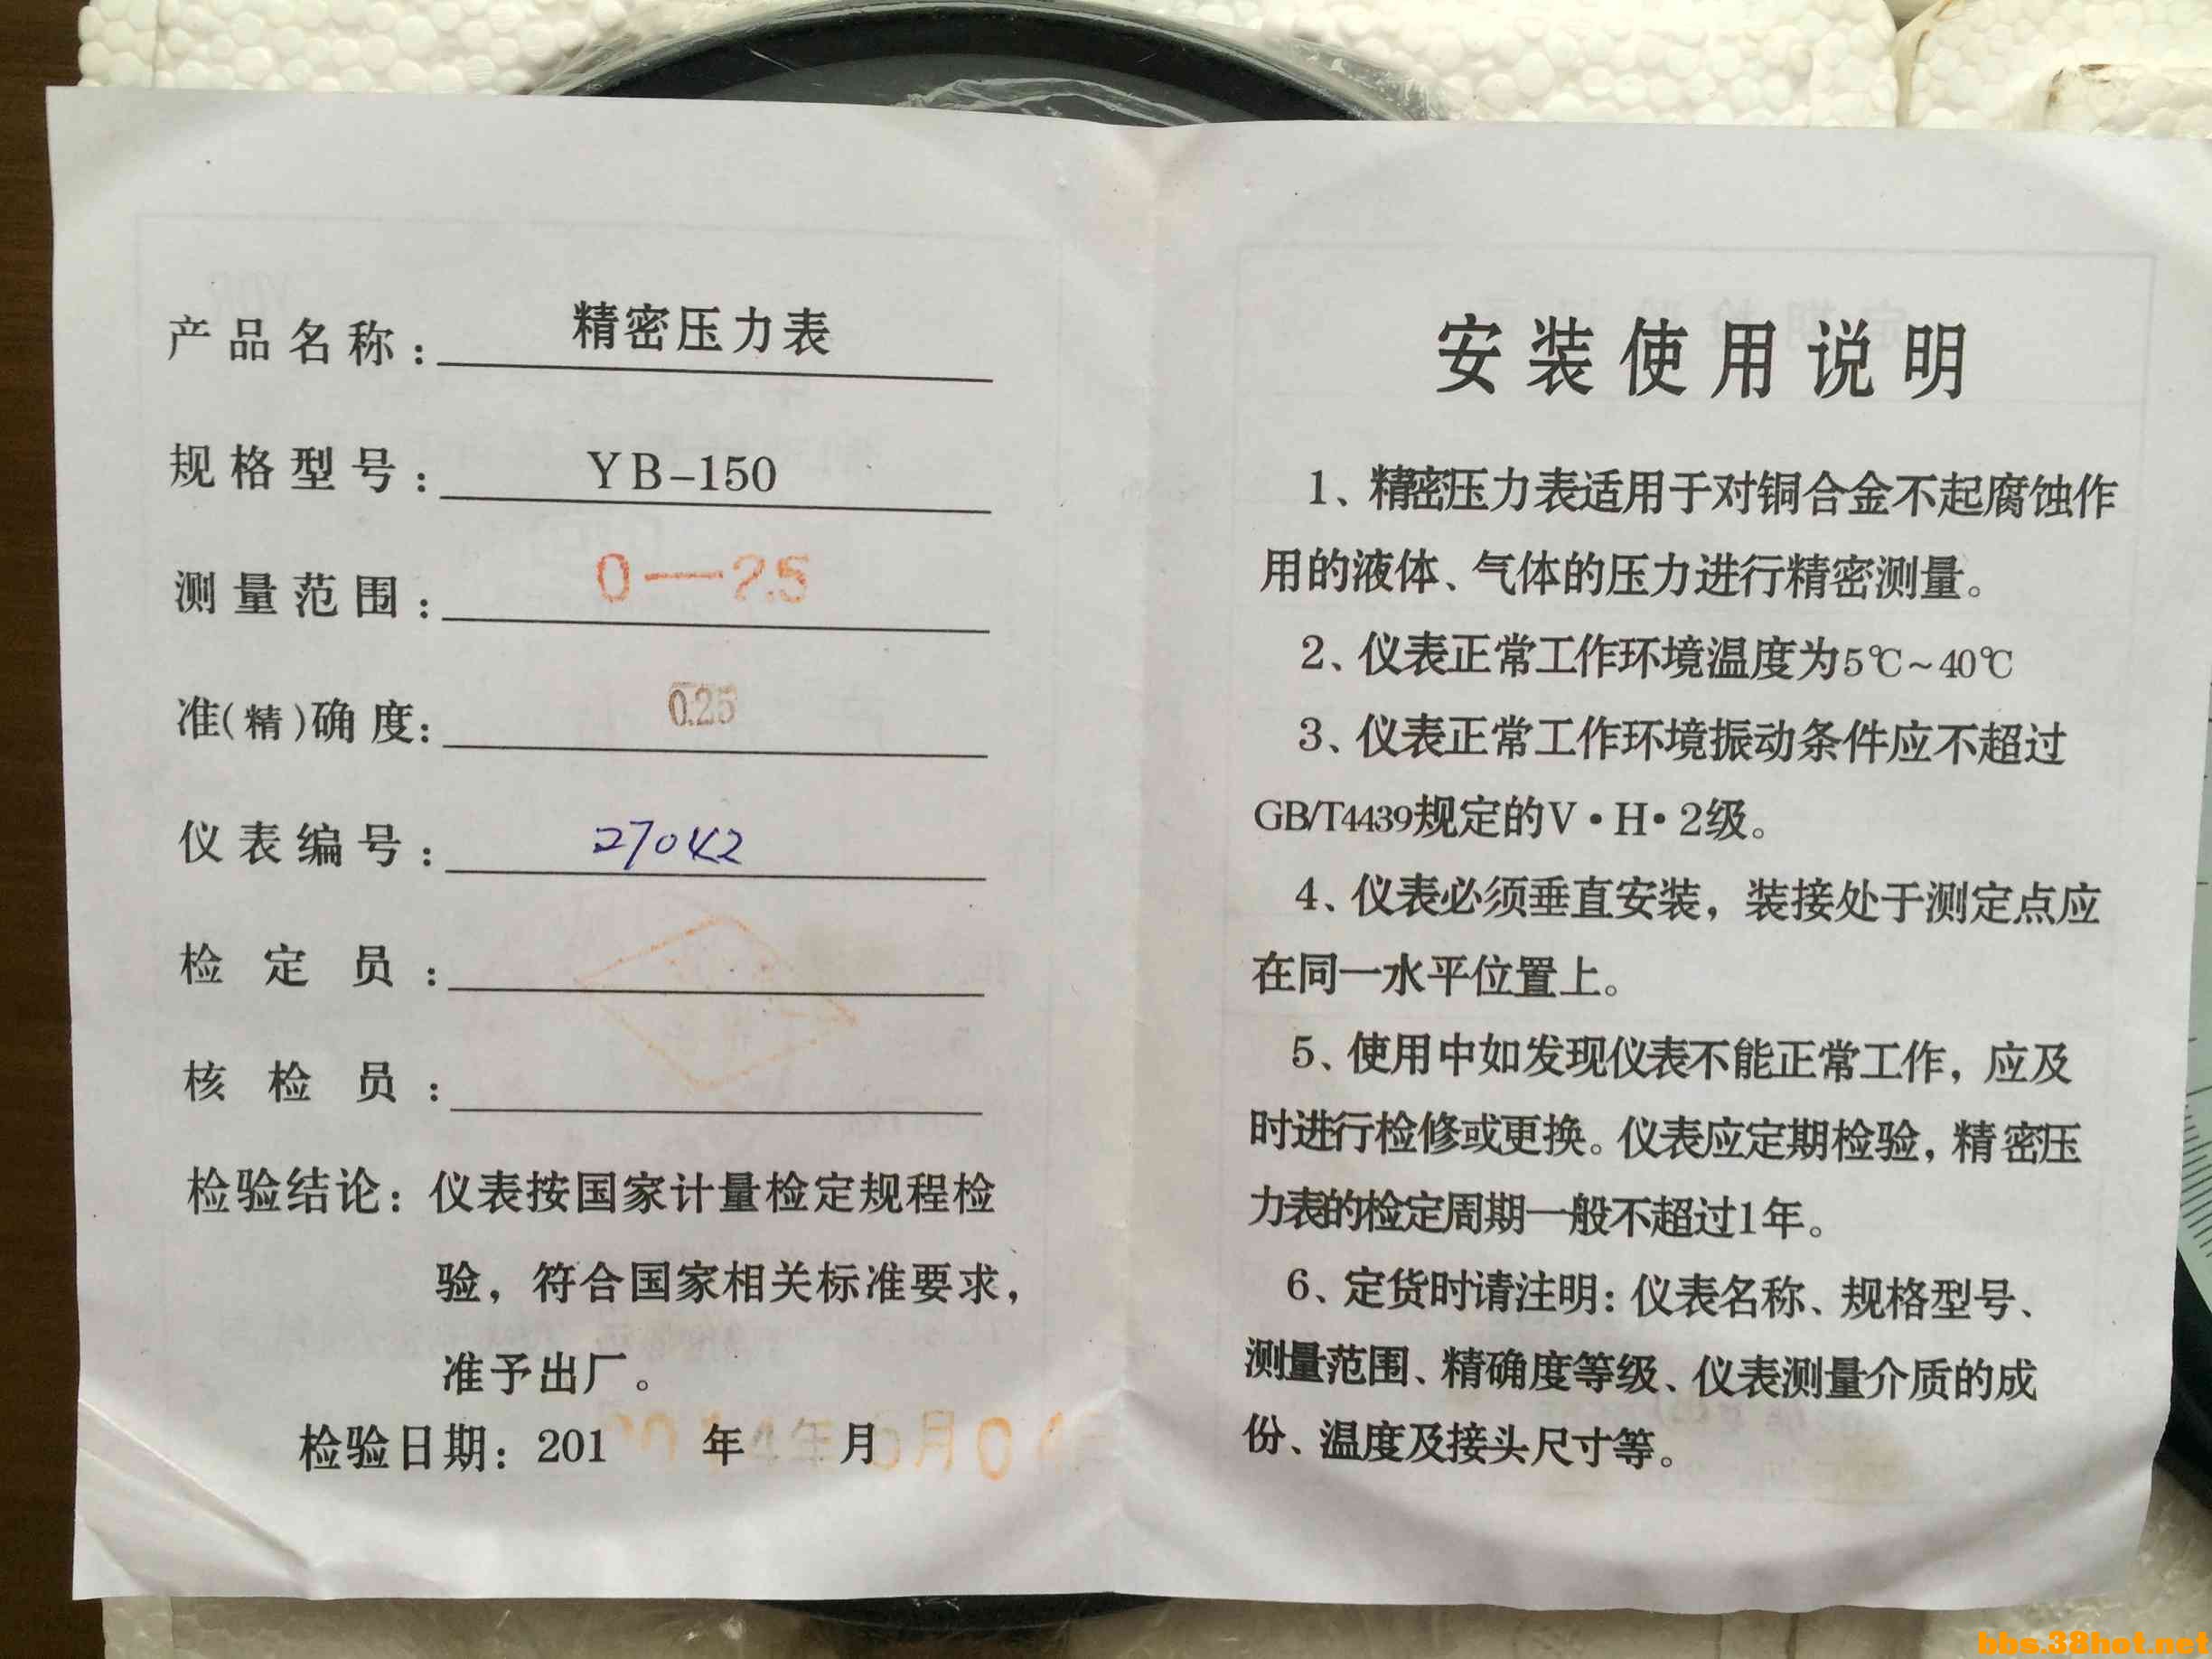 产品名称: 精密压力表
规格型号: YB-150
测量范围: 0—2.5
准(精)确度: 0.25
仪表编号: 27042
检定员:
核检员:
检验结论: 仪表按国家计量检定规程检
验，符合国家相关标准要求，
准予出厂。
检验日期: 201 年 月
安装使用说明
1、精密压力表适用于对铜合金不起腐蚀作
用的液体、气体的压力进行精密测量。
2、仪表正常工作环境温度为5℃~40℃
3、仪表正常工作环境振动条件应不超过
GB/T4439规定的V·H·2级。
4、仪表必须垂直安装，装接处于测定点应
在同一水平位置上。
5、使用中如发现仪表不能正常工作，应及
时进行检修或更换。仪表应定期检验，精密压
力表的检定周期一般不超过1年。
6、定货时请注明：仪表名称、规格型号、
测量范围、精确度等级、仪表测量介质的成
份、温度及接头尺寸等。
bbs.38hot.net